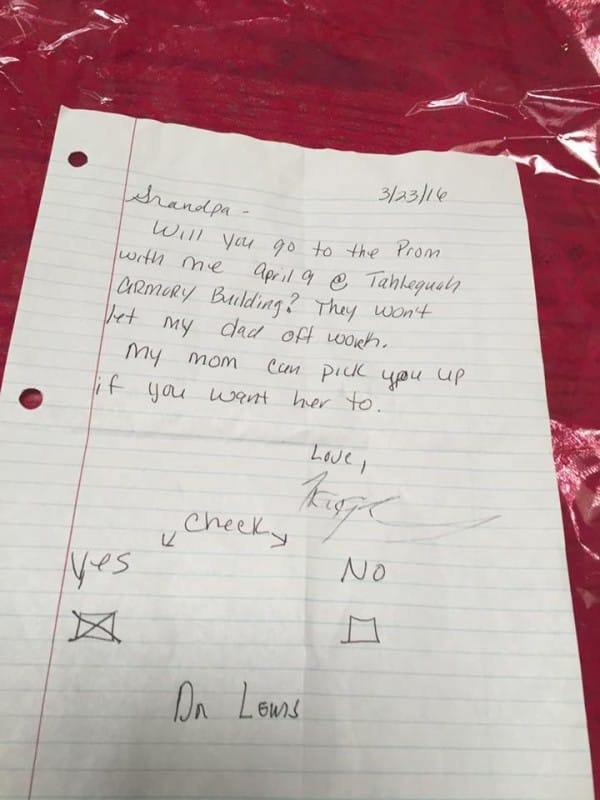 3/23/16
Grandpa -
Will you go to the Prom
with me April 9 @ Tahlequah
ARMORY Building? They won't
let my dad off work.
My mom can pick you up
if you want her to.
Love,
Check
Yes No
Dr Lewis